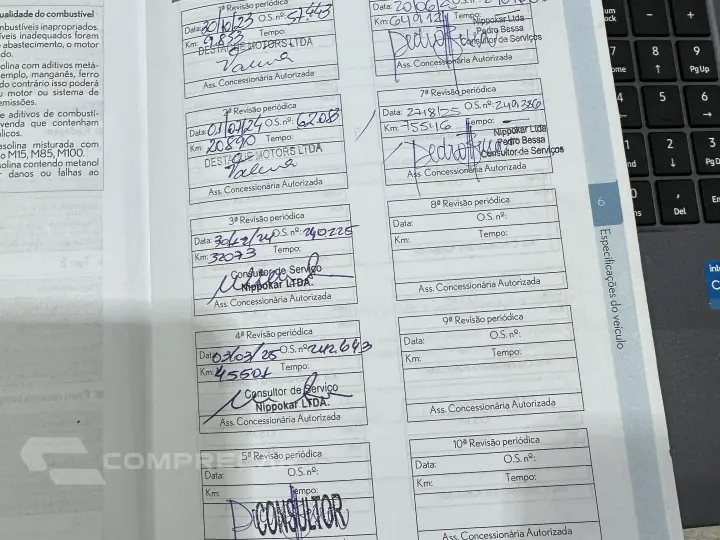 ualidade do combustível
mbustíveis inapropriados.
íveis inadequados foram
o abastecimento, o motor
do.
solina com aditivos metá-
emplo, manganês, ferro
o contrário isso poderá
u motor ou sistema de
emissões.
e aditivos de combustí-
venda que contenham
licos.
asolina misturada com
o M15, M85, M100.
asolina contendo metanol
r danos ou falhas ao
1ª Revisão periódica
Data: 20/10/23 O.S. nº: 57443
Km: 9.833 Tempo:
DESTAQUE MOTORS LTDA
Ass. Concessionária Autorizada
2ª Revisão periódica
Data: 01/07/24 O.S. nº: 62080
Km: 20890 Tempo:
DESTAQUE MOTORS LTDA
Ass. Concessionária Autorizada
3ª Revisão periódica
Data: 30/12/24 O.S. nº: 240225
Km: 32073 Tempo:
Consultor de Serviço
Nippokar LTDA.
Ass. Concessionária Autorizada
4ª Revisão periódica
Data: 03/03/25 O.S. nº: 242643
Km: 45501 Tempo:
Consultor de Serviço
Nippokar LTDA.
Ass. Concessionária Autorizada
5ª Revisão periódica
Data: O.S. nº:
Km: Tempo:
CONSULTOR
Data:
Km: Tempo:
Nippokar Ltda
Pedro Bessa
Consultor de Serviços
Ass. Concessionária Autorizada
7ª Revisão periódica
Data: O.S. nº: 249286
Km: Tempo:
Nippokar Ltda
Pedro Bessa
Consultor de Serviços
Ass. Concessionária Autorizada
8ª Revisão periódica
Data: O.S. nº:
Km: Tempo:
Ass. Concessionária Autorizada
9ª Revisão periódica
Data: O.S. nº:
Km: Tempo:
Ass. Concessionária Autorizada
10ª Revisão periódica
Data: O.S. nº:
Km: Tempo:
Ass. Concessionária Autorizada
6
Especificações do veículo
um
ock
-
+
7
8
9
ome
↑
PgUp
4
5
6
1
2
3
nd
↓
PgDn
0
,
.
Del
Ent
inte
CO
COMPRECAR